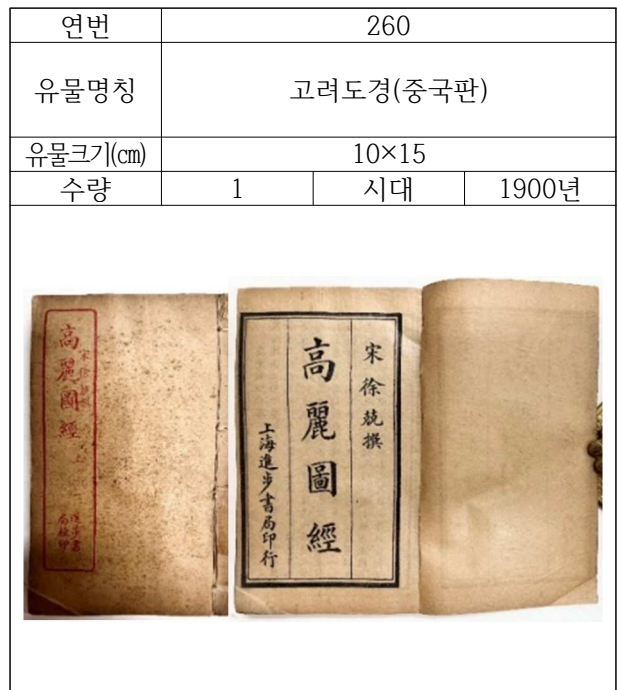 연번 260
유물명칭 고려도경(중국판)
유물크기(㎝) 10×15
수량 1 시대 1900년
高麗圖經
宋徐兢撰
高麗圖經
上海進步書局印行